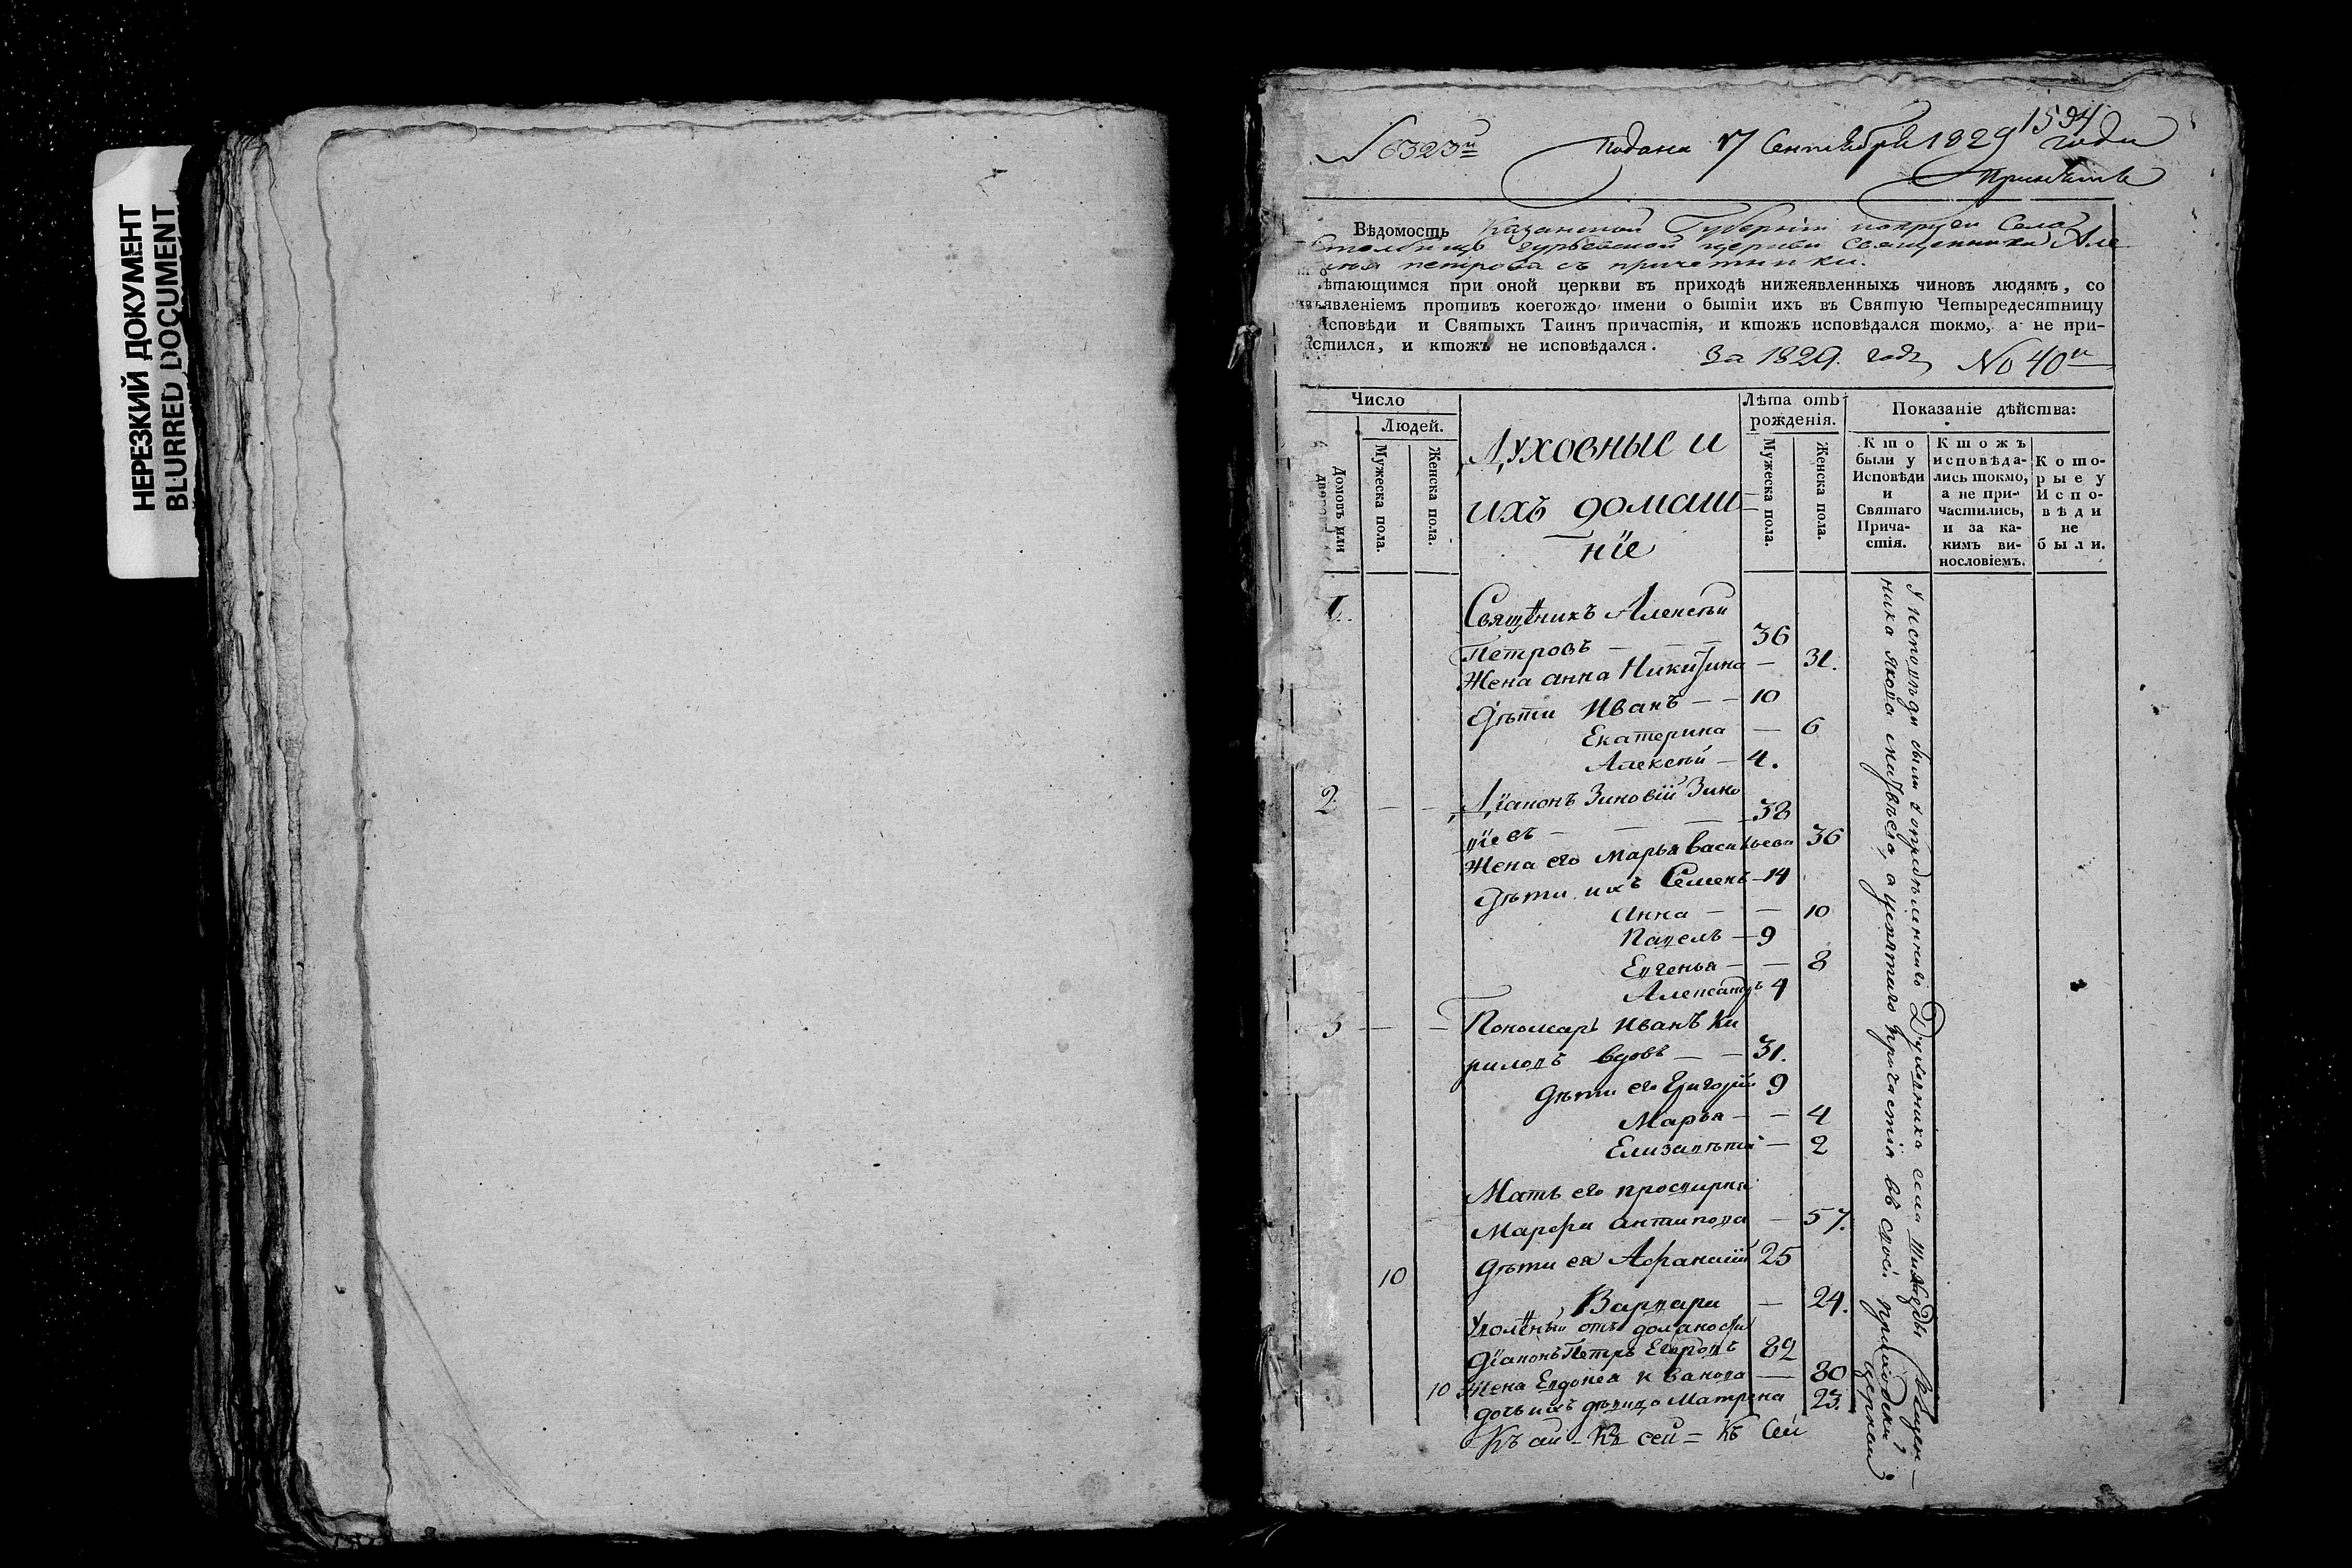 НЕРЕЗКИЙ ДОКУМЕНТ
BLURRED DOCUMENT
1594
N 6323й Подана 17 Сентября 1829 года
Вѣдомость Казанской Губерніи Села
церкви священника Але
петрова съ причетники.
ѣтающимся при оной церкви въ приходѣ нижеявленныхъ чиновъ людямъ, со
изъявленіемъ противъ коегождо имени о бытіи ихъ въ Святую Четыредесятницу
Исповѣди и Святыхъ Таинъ причастія, и ктожъ исповѣдался токмо, а не при-
астился, и ктожъ не исповѣдался.
За 1829. годъ No 40й
Число
Людей.
Домовъ или дворовъ
Мужеска пола.
Женска пола.
Духовные и
ихъ домаш
ніе
Лѣта отъ
рожденія.
Мужеска пола.
Женска пола.
Показаніе дѣйства:
Кто были у Исповѣди и Святаго Прича-стія.
Ктожъ исповѣда-лись токмо, а не при-частились, и за ка-кимъ ви-нословіемъ.
Кото-рые у Испо-вѣди не были.
1. Свящѣникъ Алексѣй
Петровъ — — 36
Жена анна Никитина — 31.
Дѣти Иванъ — — 10
Екатерина — 6
Алексѣй — 4.
2 — — Діаконъ Зиновій Зино
віевъ — — — 38
Жена его Марья Васильева 36
Дѣти ихъ Семенъ — 14
Анна — — 10
Павелъ — 9
Евгенья — — 8
Александръ 4
3 — — Пономарь Иванъ Ки
риловъ вдовъ — — 31.
Дѣти его Григорій 9
Марья — — 4
Елизавѣта — 2
Мать его просвирня
Марфа антипова — 57.
10 Дѣти ея Афанасій 25
Варвара — 24.
Уволѣный отъ должности
діаконъ Петръ Егоровъ 82
10 Жена Евдокея Иванова — 80
дочь ихъ дѣвица Матрена 23.
Къ сей = Къ сей = Къ Сей
У исповѣди были у опредѣленнаго Духовника села Священ—
ника Якова Матвѣева, а святаго причастія въ своей приходской церкви